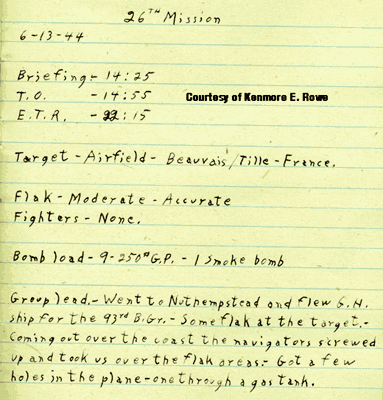 26TH Mission
6-13-44
Briefing- 14:25
T.O. - 14:55
Courtesy of Kenmore E. Rowe
E.T.R. - 22:15
Target - Airfield - Beauvais/Tille - France.
Flak - Moderate - Accurate
Fighters - None.
Bomb load - 9-250# G.P. - 1 smoke bomb
Group lead.- Went to Nuthempstead and flew G.H.
ship for the 93rd B.Gr.- Some flak at the target.-
Coming out over the coast the navigators screwed
up and took us over the flak areas.- Got a few
holes in the plane-one through a gas tank.